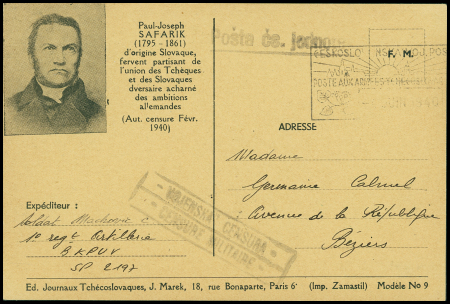 Paul-Joseph
SAFARIK
(1795 - 1861)
d'origine Slovaque,
fervent partisan de
l'union des Tchèques
et des Slovaques
dversaire acharné
des ambitions
allemandes
(Aut. censure Févr.
1940)
Posta čs.
F. M.
POSTE AUX ARMÉES TCHÉCO
ADRESSE
Madame
Germaine
Avenue de la République
Béziers
Expéditeur :
Soldat
1º regt Artillerie
SP 2197
VOJENSKÁ CENSURA
CENSURE MILITAIRE
Ed. Journaux Tchécoslovaques, J. Marek, 18, rue Bonaparte, Paris 6ᵉ (Imp. Zamastil) Modèle No 9